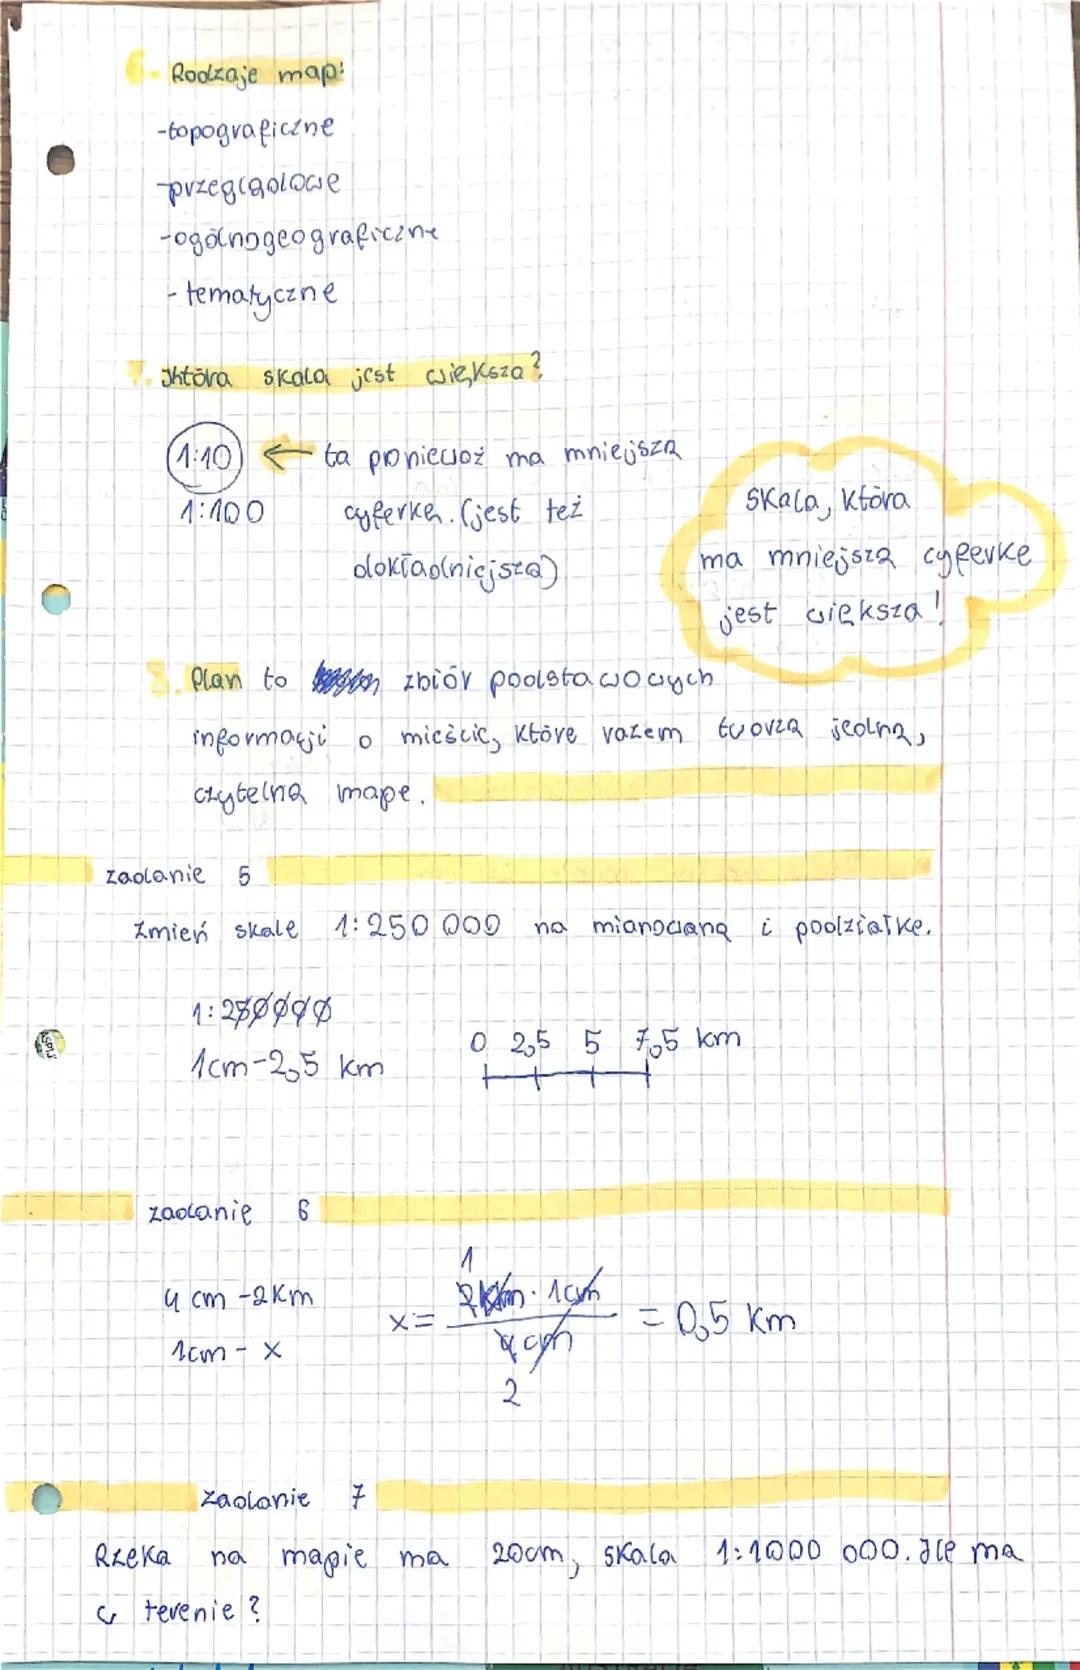 6. Rodzaje map:
-topograficzne
-przeglądowe
-ogólnogeograficzne
- tematyczne
7. Która skala jest większa?
1:10 ← ta ponieważ ma mniejszą
1:100 cyferkę. (jest też
dokładniejsza)
Skala, która
ma mniejszą cyferkę
jest większa!
8. Plan to zbiór podstawowych
informacji o mieście, które razem tworzą jedną,
czytelną mapę.
zadanie 5
Zmień skalę 1:250 000 na mianowaną i podziałkę.
1:250000
1cm-2,5 km
0 2,5 5 7,5 km
zadanie 6
4 cm -2km
1cm - x
x= 2km · 1cm / 4cm = 0,5 km
1
2
zadanie 7
Rzeka na mapie ma 20cm, skala 1:1000 000. Ile ma
w terenie?